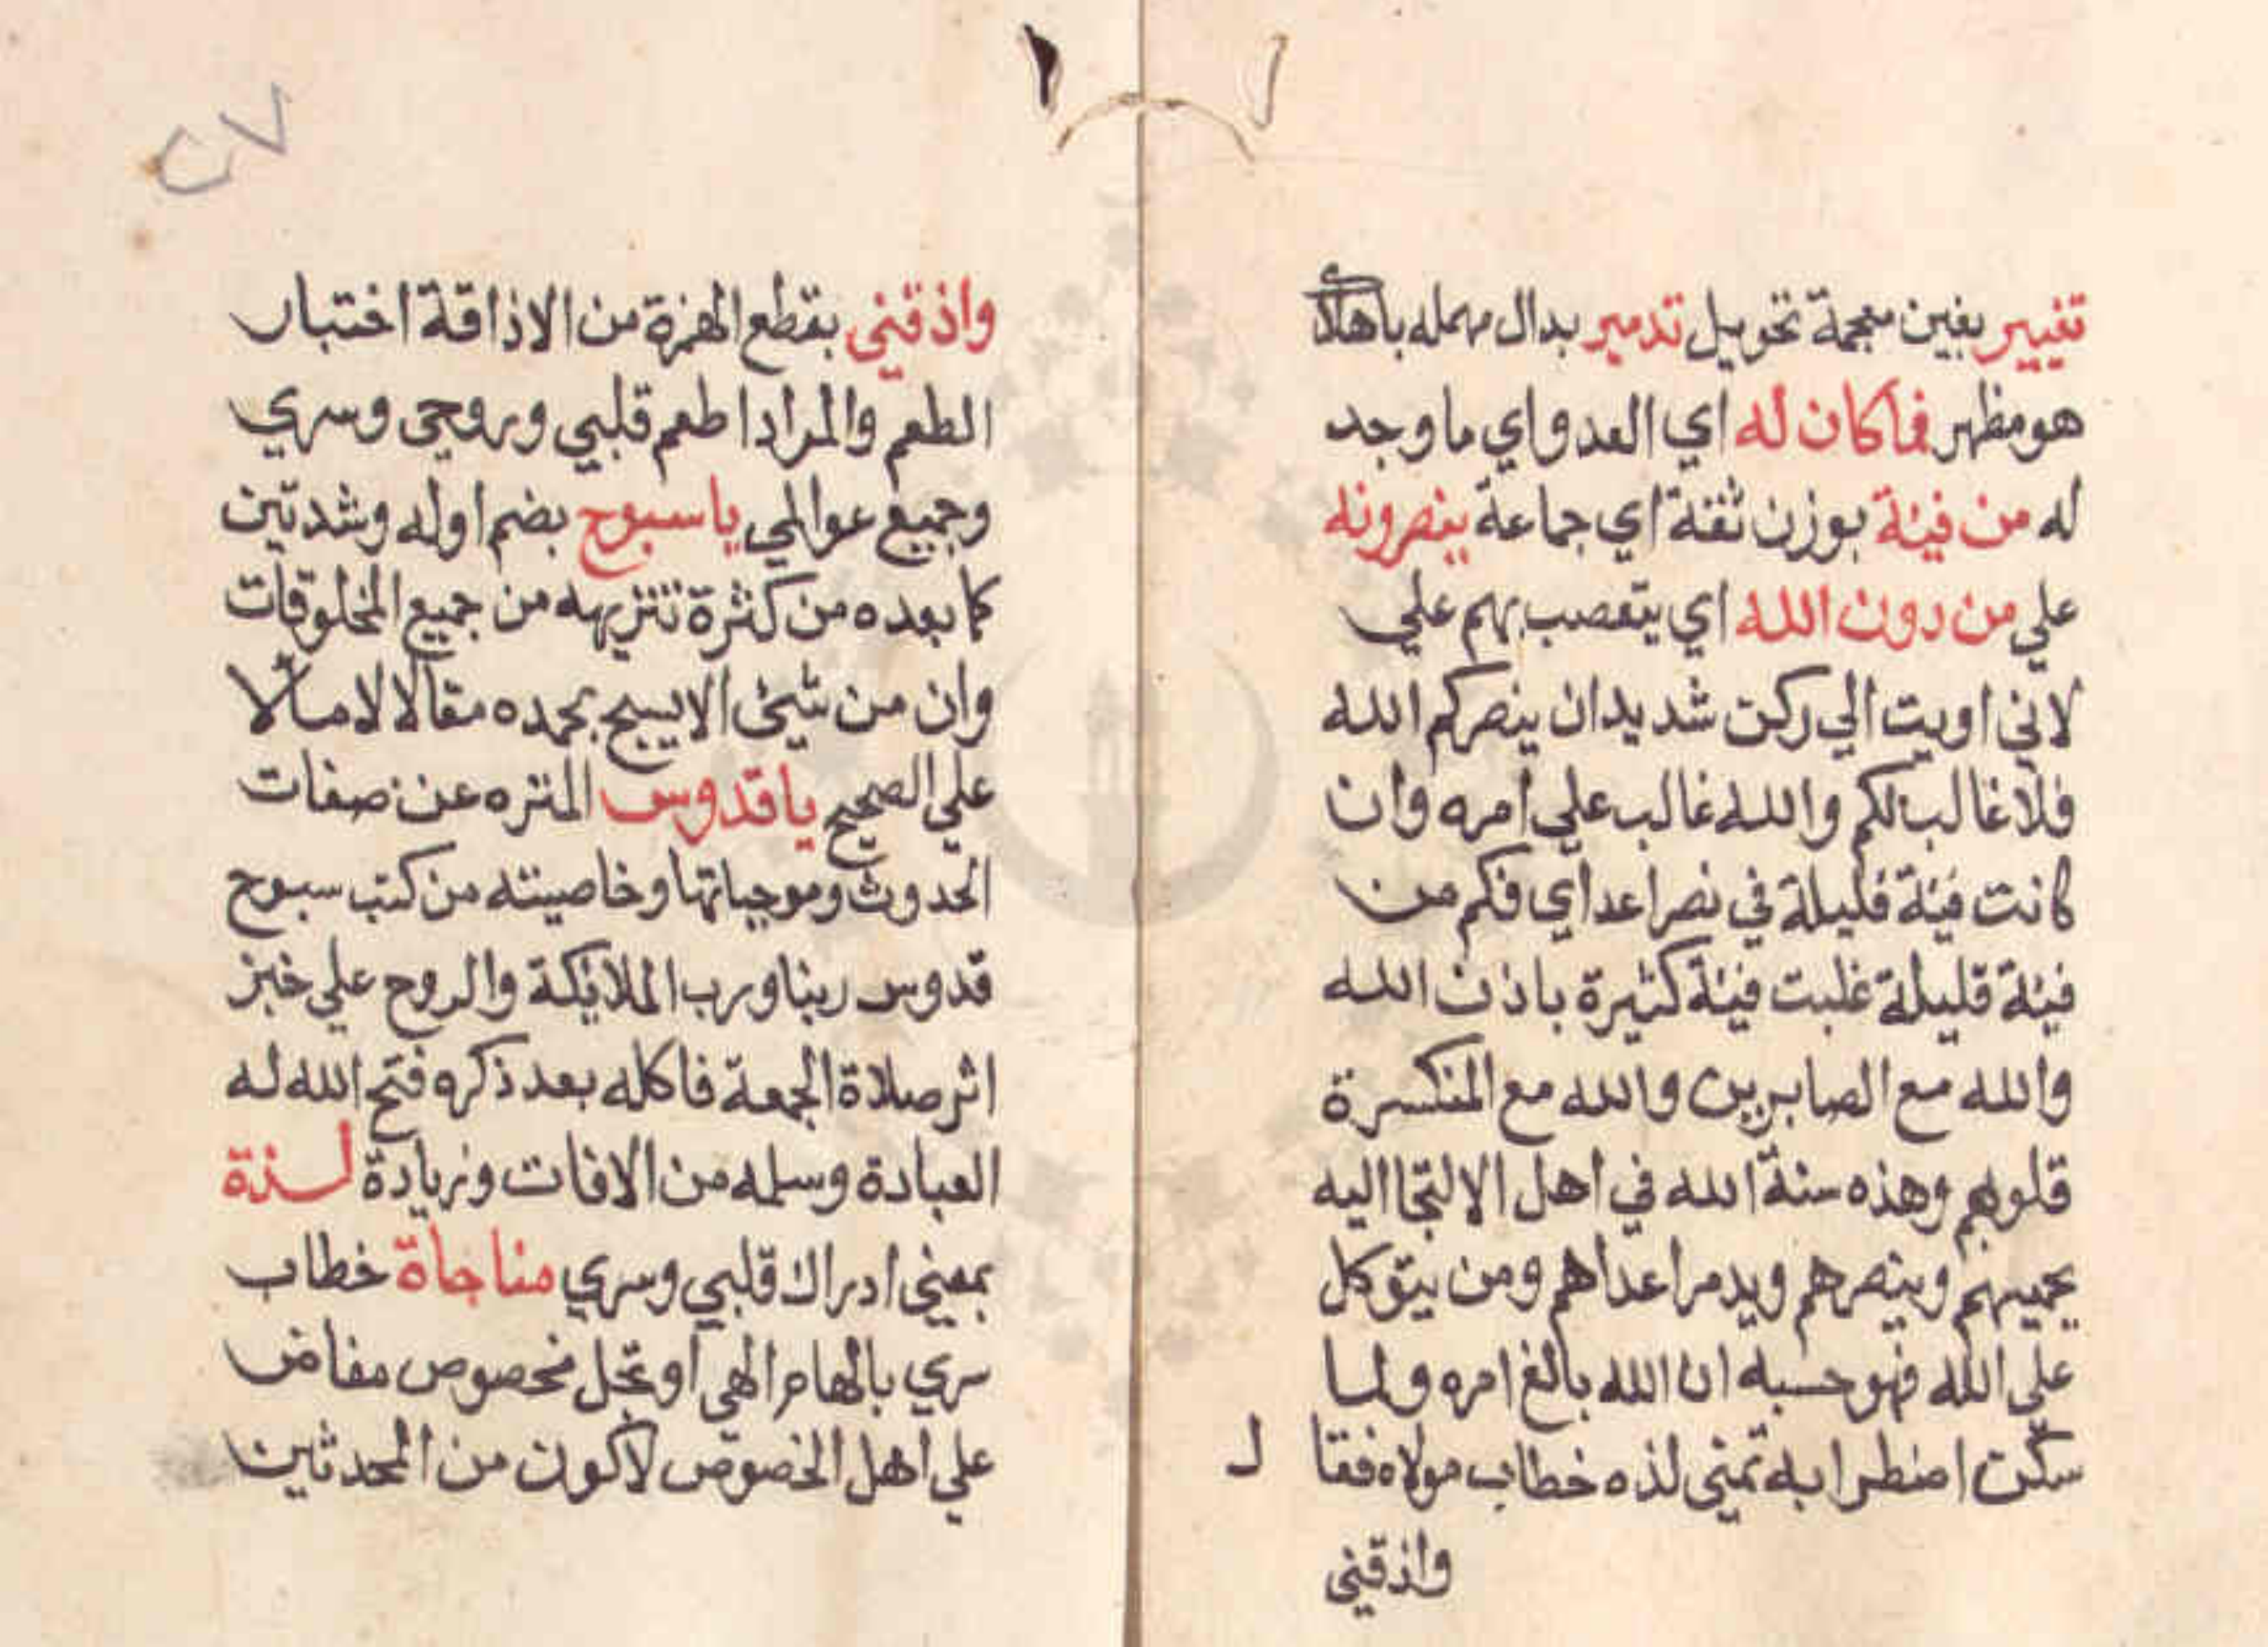 تغيير بغين معجمة تحويل تدمير بدال مهمله باهلاك
هو مظهر فما كان له اي العدو اي ما وجد
له من فيئة بوزن ثقة اي جماعة ينصرونه
علي من دون الله اي يتعصب بهم علي
لاني اويت الي ركن شديد ان ينصركم الله
فلا غالب لكم والله غالب علي امره وان
كانت فيئة قليلة في نصر اعداي فكم من
فيئة قليلة غلبت فيئة كثيرة باذن الله
والله مع الصابرين والله مع المنكسرة
قلوبهم وهذه سنة الله في اهل الالتجا اليه
يحميهم وينصرهم ويدمر اعداهم ومن يتوكل
علي الله فهو حسبه ان الله بالغ امره ولما
سكن اضطرابه تمني لذه خطاب مولاه فقا ل
واذقني
٢٧
واذقني بقطع الهمزة من الاذاقة اختبار
الطعم والمراد اطعم قلبي وروحي وسري
وجميع عوالمي يا سبوح بضم اوله وشد تين
كما بعده من كثرة تنزيهه من جميع المخلوقات
وان من شيئ الا يسبح بحمده مقالا لا مآلا
علي الصحيح يا قدوس المنزه عن صفات
الحدوث وموجباتها وخاصيته من كتب سبوح
قدوس ربنا ورب الملائيكة والروح علي خبز
اثر صلاة الجمعة فاكله بعد ذكره فتح الله له
العبادة وسلمه من الافات وزيادة لذة
بمعني ادراك قلبي وسري مناجاة خطاب
سري بالهام الهي او تجل مخصوص مفاض
علي اهل الخصوص لاكون من المحدثين